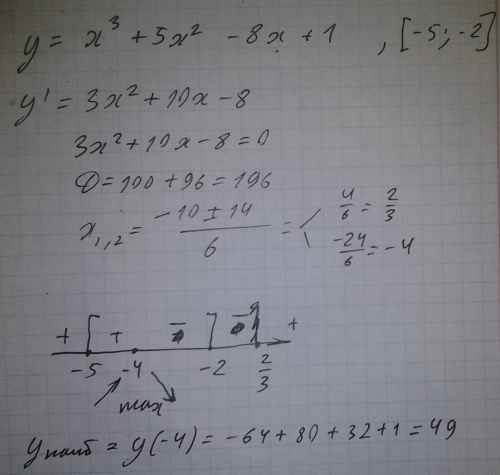 y = x³ + 5x² - 8x + 1 , [-5; -2]
y' = 3x² + 10x - 8
3x² + 10x - 8 = 0
D = 100 + 96 = 196
x₁,₂ = (-10 ± 14)/6 = 4/6 = 2/3
-24/6 = -4
+ [ + - ] - +
-5 -4 -2 2/3
max
yнаиб = y(-4) = -64 + 80 + 32 + 1 = 49